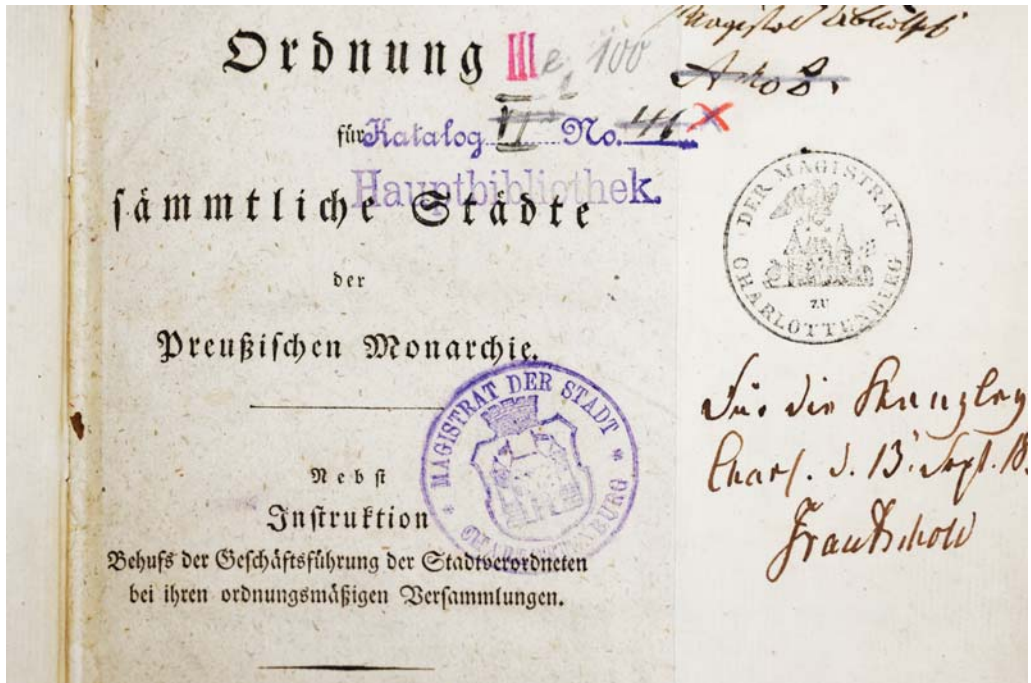 Ordnung III e, 100
fürKatalog II No. 46 X
Hauptbibliothek.
sämmtliche Städte
der
Preußischen Monarchie.
Nebst
Instruktion
Behufs der Geschäftsführung der Stadtverordneten
bei ihren ordnungsmäßigen Versammlungen.
MAGISTRAT DER STADT
CHARLOTTENBURG
DER MAGISTRAT
ZU
CHARLOTTENBURG
Für die Kanzley
Charl. d. 13. Sept. 18